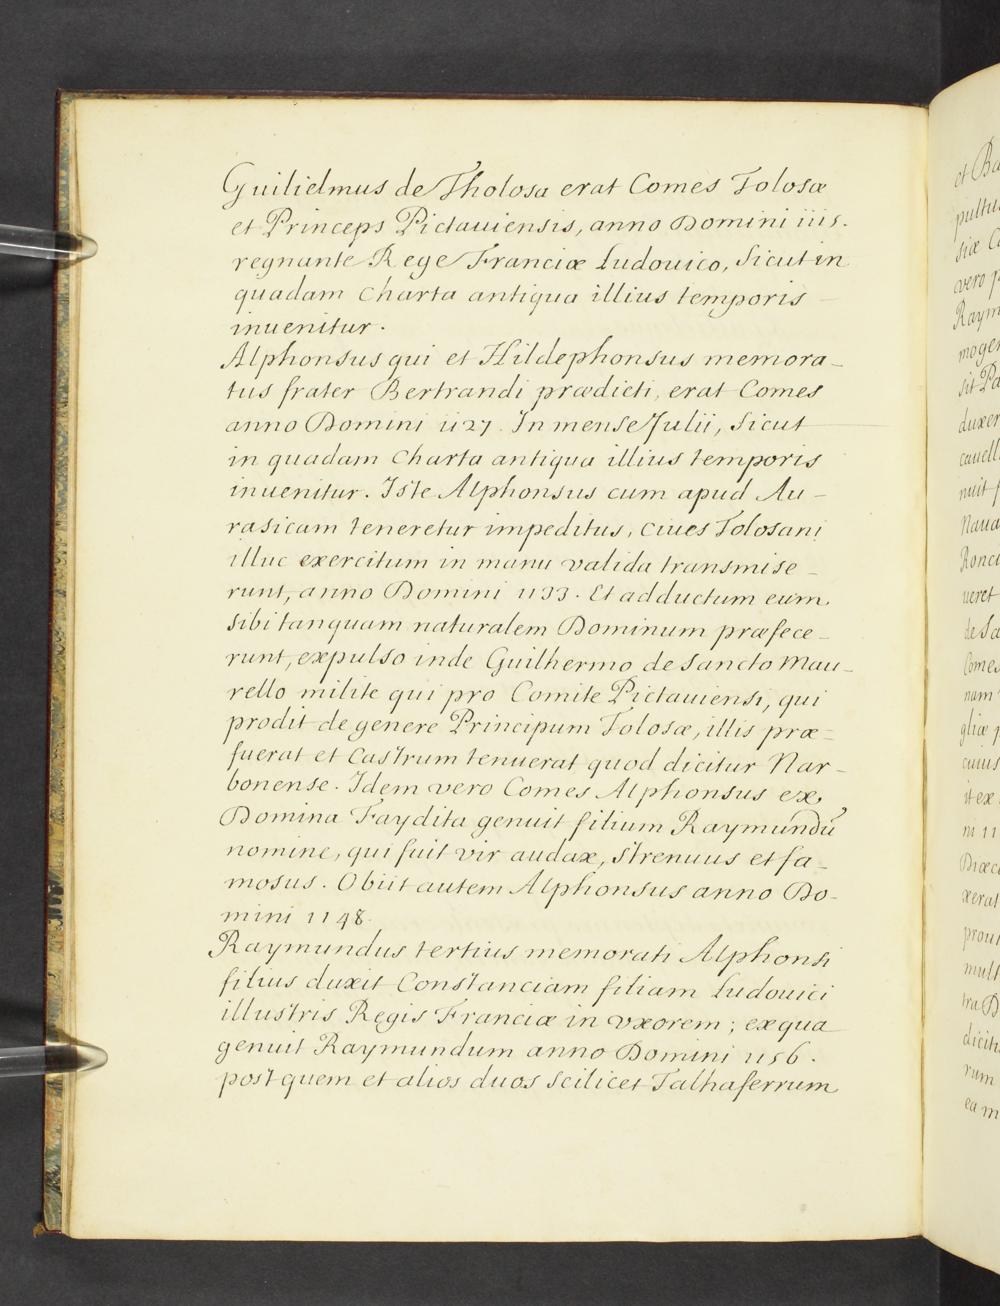 Guilielmus de Tholosa erat Comes Tolosæ
et Princeps Pictauiensis, anno Domini 1115.
regnante Rege Franciæ Ludouico, Sicut in
quadam Charta antiqua illius temporis
inuenitur.
Alphonsus qui et Hildephonsus memora-
tus frater Bertrandi prædicti, erat Comes
anno Domini 1127. In mense Julii, Sicut
in quadam Charta antiqua illius temporis
inuenitur. Iste Alphonsus cum apud Au-
rasicam teneretur impeditus, Ciues Tolosani
illuc exercitum in manu valida transmise-
runt, anno Domini 1133. Et adductum eum
sibi tanquam naturalem Dominum præfece-
runt, expulso inde Guilhermo de Sancto Mau-
rello milite qui pro Comite Pictauiensi, qui
prodit de genere Principum Tolosæ, illis præ=
fuerat et Castrum tenuerat quod dicitur Nar-
bonense. Idem vero Comes Alphonsus ex
Domina Faydita genuit filium Raymundū
nomine, qui fuit vir audax, strenuus et fa-
mosus. Obiit autem Alphonsus anno Do-
mini 1148.
Raymundus tertius memorati Alphonsi
filius duxit Constanciam filiam Ludouici
illustris Regis Franciæ in vxorem; ex qua
genuit Raymundum anno Domini 1156.
post quem et alios duos scilicet Talhaferrum
et Ba
pultu
siæ C
vero p
Raym
moger
sit Pa
duxer
cauell
nuit f
Naua
Ronci
ueret
de Sa
Comes
nam
gliæ p
cuius
it ex
ni 11
Diœce
xerat
prout
mult
tra D
dicitu
rum
ea m